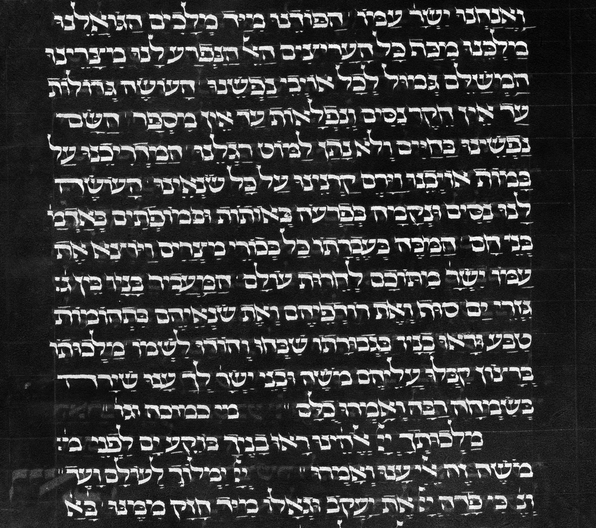 ואנחנו ישר עמו הפודנו מיד מלכים הגואלנו
מלכנו מכף כל העריצים הא הנפרע לנו מיצרינו
המשלם גמול לכל אויבי נפשנו העושה גדולות
עד אין חקר נסים ונפלאות עד אין מספר השם
נפשינו בחיים ולא נתן למוט רגלנו המדריכנו על
במות אויבנו וירם קרנינו על כל שנאינו העושה
לנו נסים ונקמה בפרעה באותות ובמופתים באדמ
בני חם המכה בעברתו כל בכורי מיצרים ויוצא את
עמו ישר מתוכם לחרות עולם המעביר בניו בין ג
גזרי ים סוף ואת רודפיהם ואת שנאיהם בתהומות
טבע וראו בניו בגבורתו שבחו והודו לשמו מלכותו
ברצון קבלו עליהם משה ובני ישר לך ענו שירה
בשמחה רבה ואמרו כלם מי כמוכה וגו
מלכותך יי אהינו ראו בניך בוקע ים לפני מ
משה זה אי ענו ואמרו יי ימלוך לעולם ועד
ונ כי פדה יי את יעקב וגאלו מיד חזק ממנו בא